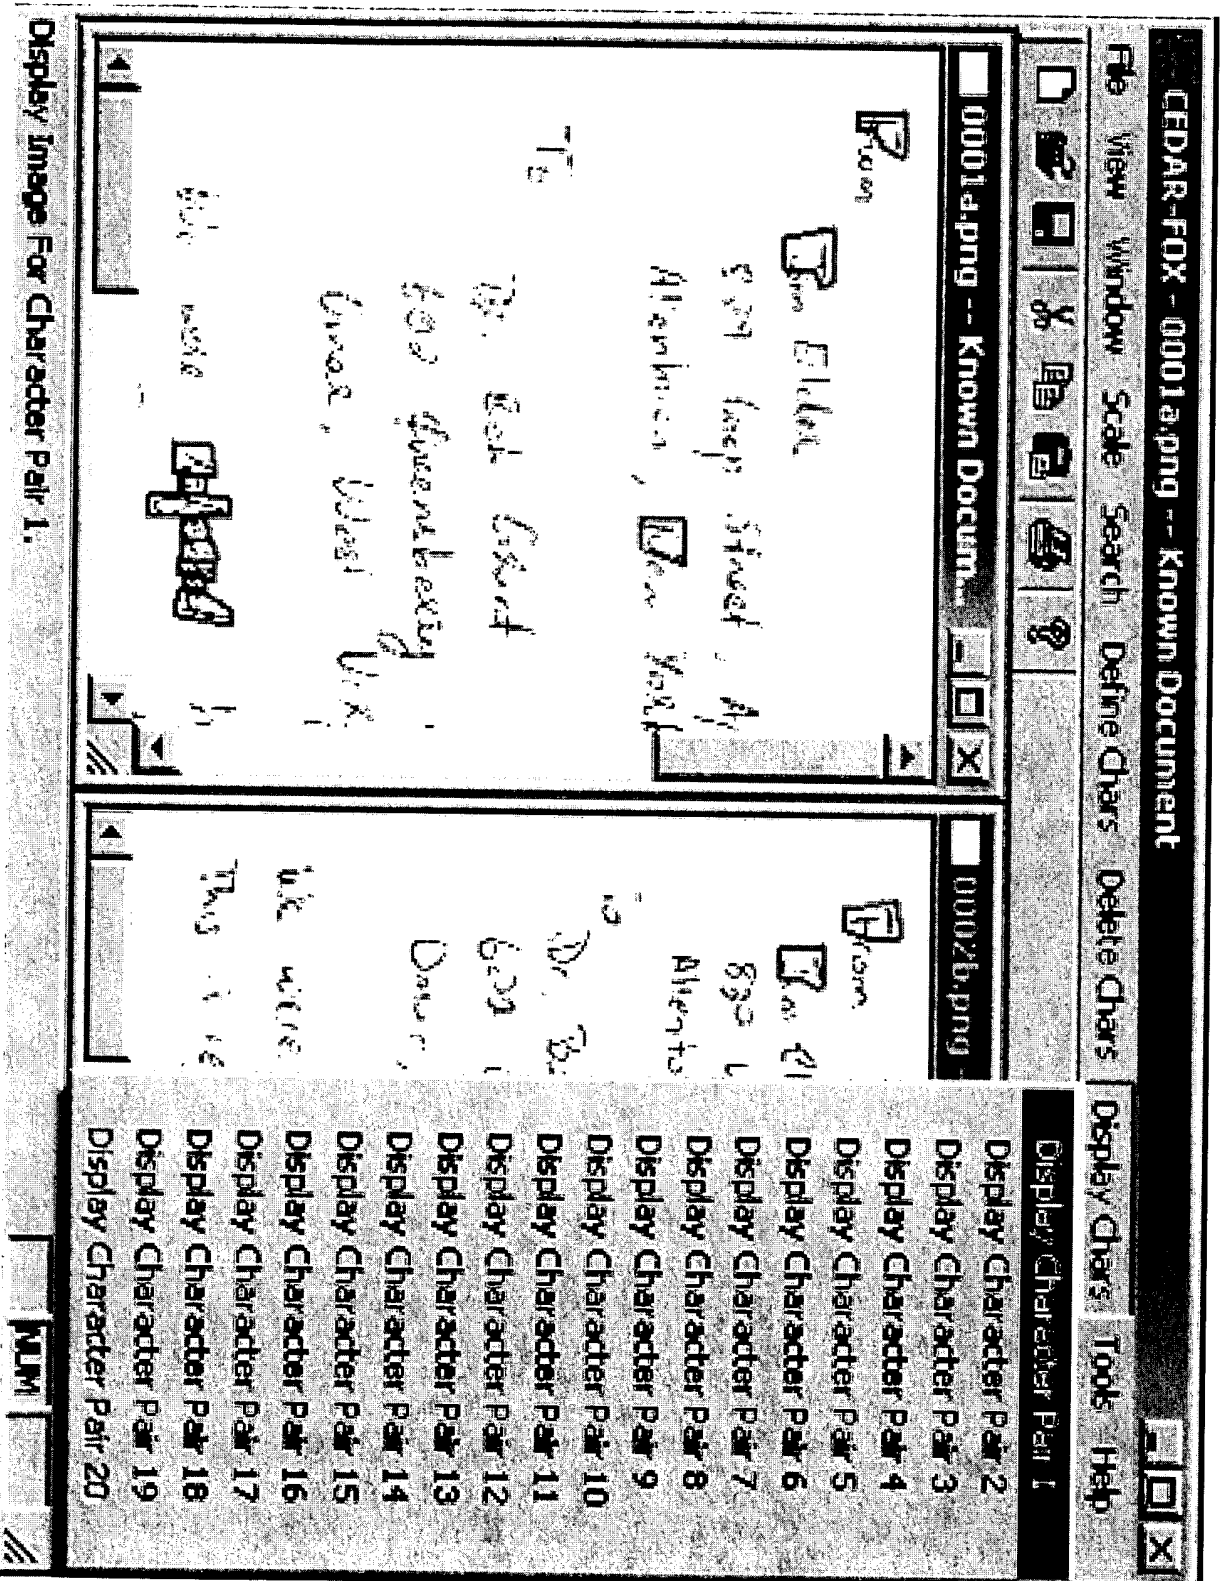 CEDAR-FOX - 0001a.png -- Known Document
File View Window Scale Search Define Chars Delete Chars Display Chars Tools Help
0001a.png -- Known Docum...
From
Jim Elder
829 Loop Street, Ap
Allentown, New York
To
Dr. Bob Grant
602 Queensberry
Omar, West Vir
We were
0002b.png -
From
Jim El
Allento
To
Dr. Bo
602
We were
This i
Display Character Pair 1
Display Character Pair 2
Display Character Pair 3
Display Character Pair 4
Display Character Pair 5
Display Character Pair 6
Display Character Pair 7
Display Character Pair 8
Display Character Pair 9
Display Character Pair 10
Display Character Pair 11
Display Character Pair 12
Display Character Pair 13
Display Character Pair 14
Display Character Pair 15
Display Character Pair 16
Display Character Pair 17
Display Character Pair 18
Display Character Pair 19
Display Character Pair 20
Display Image For Character Pair 1.
NUM